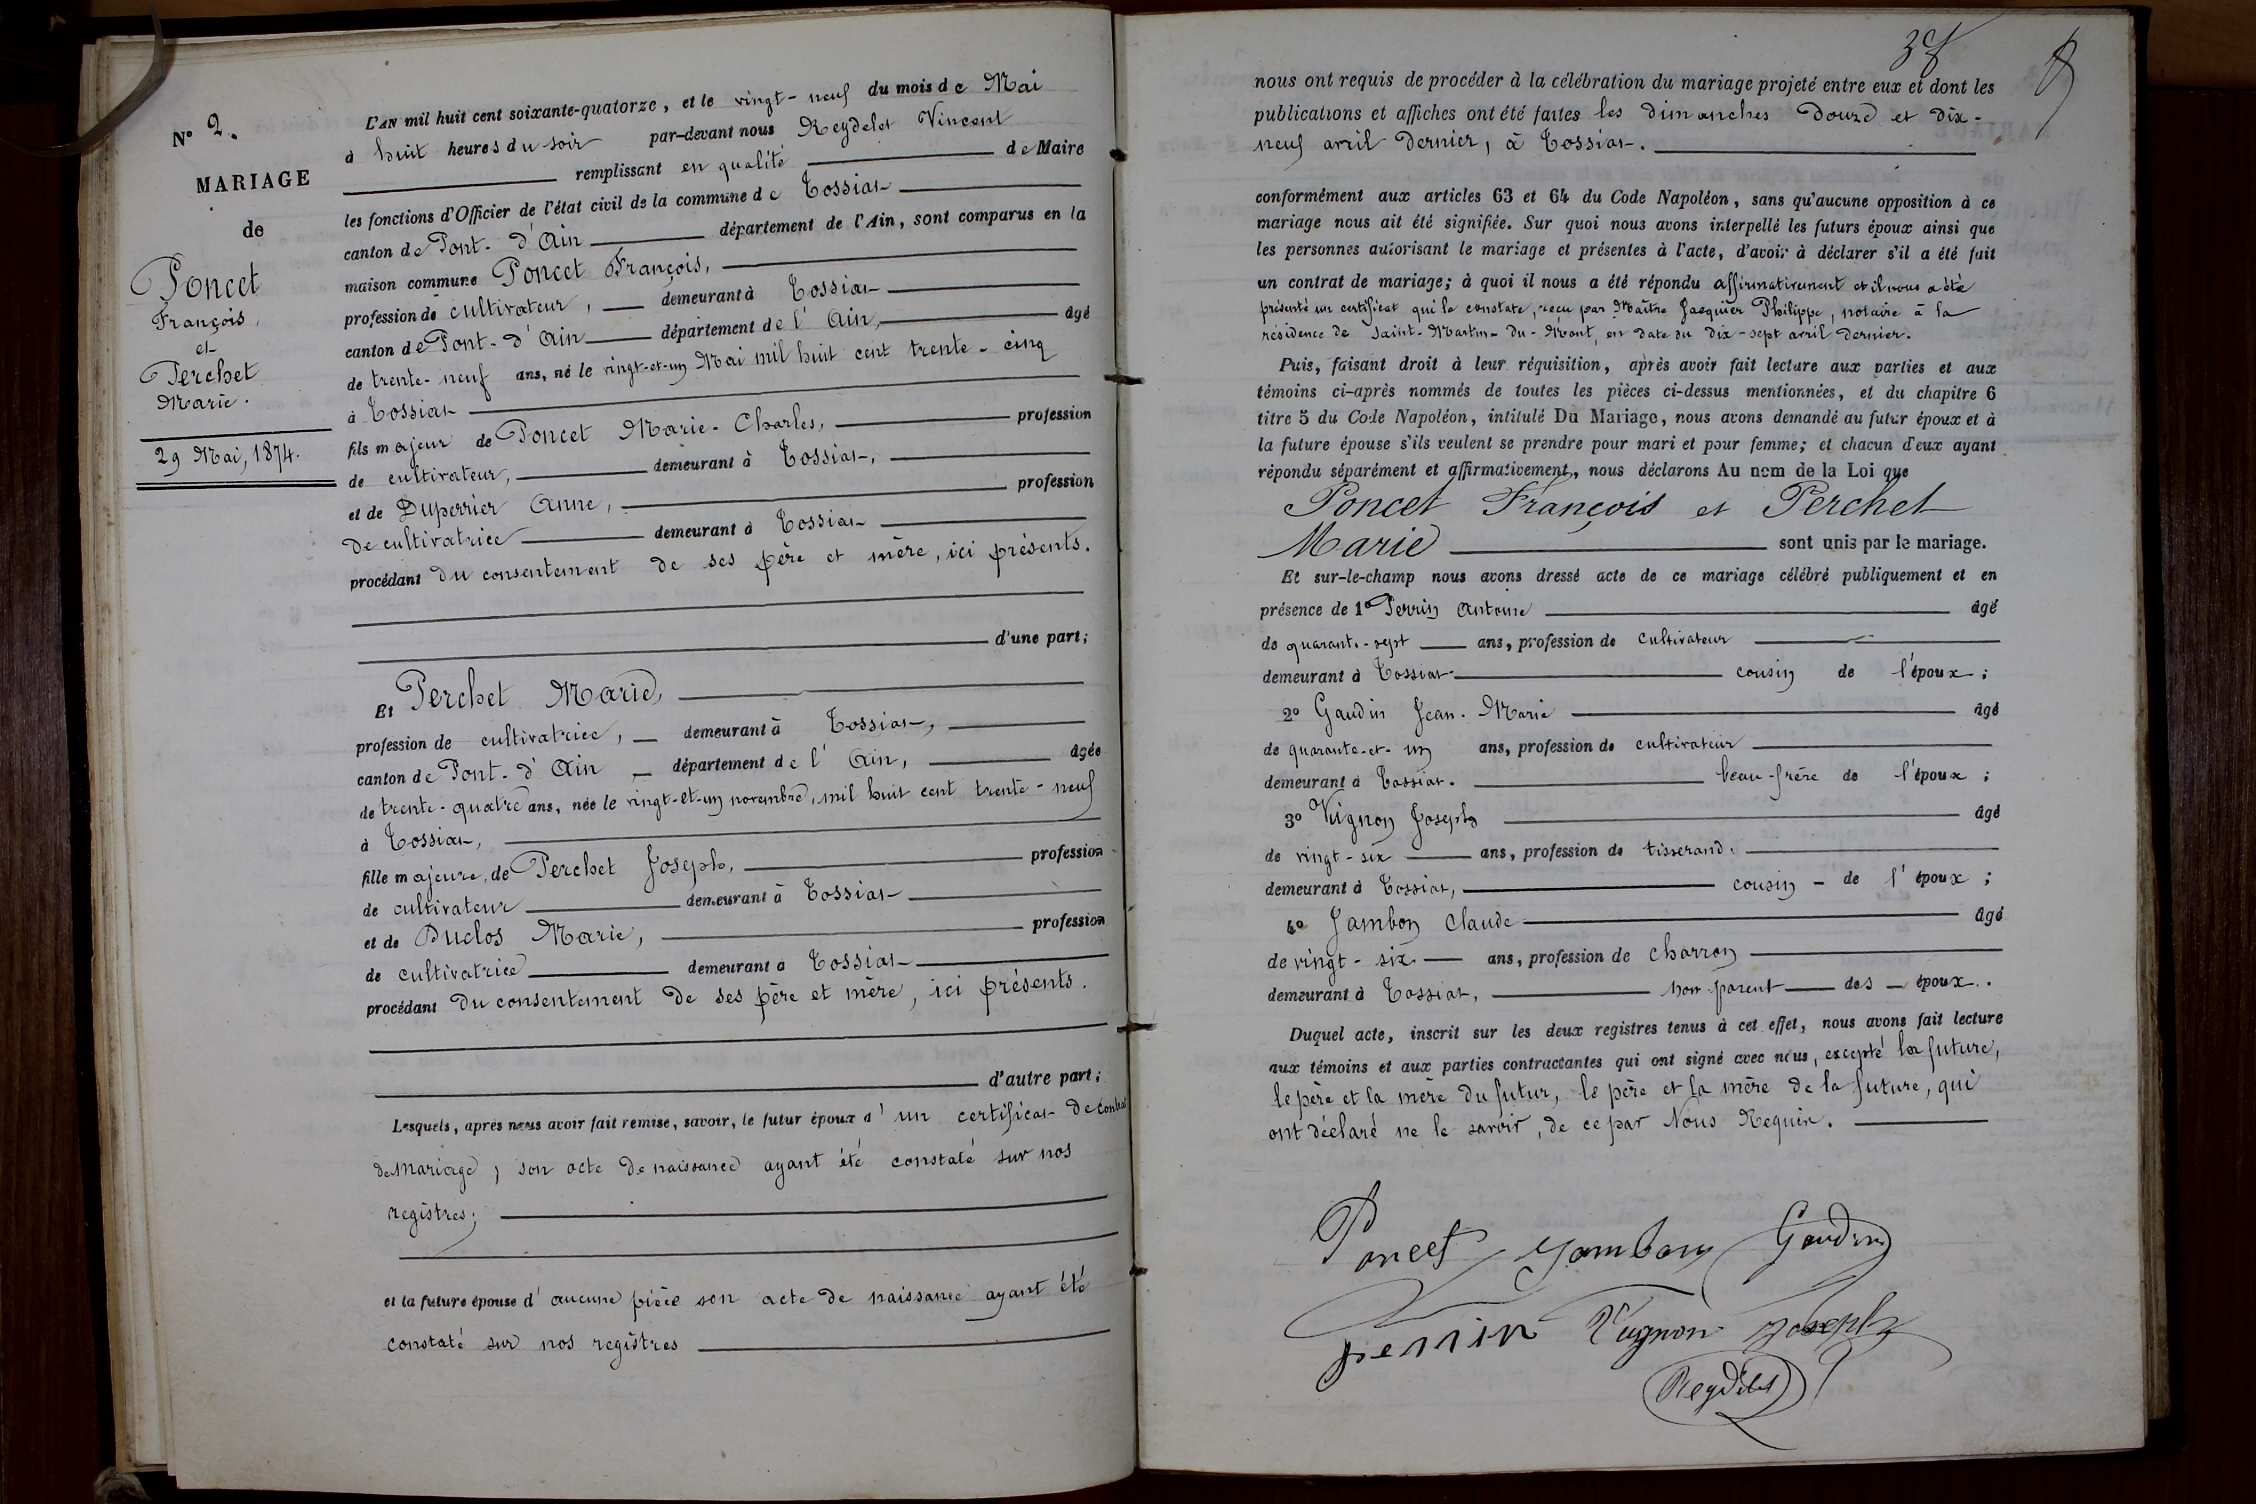 N° 2.
MARIAGE
de
Poncet
François,
et
Perchet
Marie.
29 Mai, 1874.
L'AN mil huit cent soixante-quatorze, et le vingt-neuf du mois de Mai
à huit heures du soir par-devant nous Reydelet Vincent
remplissant en qualité de Maire
les fonctions d'Officier de l'état civil de la commune de Tossiat
canton de Pont-d'Ain département de l'Ain, sont comparus en la
maison commune Poncet François,
profession de cultivateur, demeurant à Tossiat
canton de Pont-d'Ain département de l'Ain, âgé
de trente-neuf ans, né le vingt-et-un Mai mil huit cent trente-cinq
à Tossiat
fils majeur de Poncet Marie-Charles, profession
de cultivateur, demeurant à Tossiat,
et de Duperrier Anne, profession
de cultivatrice demeurant à Tossiat
procédant du consentement de ses père et mère, ici présents.
d'une part;
Et Perchet Marie,
profession de cultivatrice, demeurant à Tossiat,
canton de Pont-d'Ain département de l'Ain, âgée
de trente-quatre ans, née le vingt-et-un novembre, mil huit cent trente-neuf
à Tossiat,
fille majeure, de Perchet Joseph, profession
de cultivateur demeurant à Tossiat
et de Duclos Marie, profession
de cultivatrice demeurant à Tossiat
procédant du consentement de ses père et mère, ici présents.
d'autre part;
Lesquels, après nous avoir fait remise, savoir, le futur époux d'un certificat de contrat
de mariage, son acte de naissance ayant été constaté sur nos
registres;
et la future épouse d'aucune pièce son acte de naissance ayant été
constaté sur nos registres
nous ont requis de procéder à la célébration du mariage projeté entre eux et dont les
publications et affiches ont été faites les dimanches douze et dix-
neuf avril dernier, à Tossiat.
conformément aux articles 63 et 64 du Code Napoléon, sans qu'aucune opposition à ce
mariage nous ait été signifiée. Sur quoi nous avons interpellé les futurs époux ainsi que
les personnes autorisant le mariage et présentes à l'acte, d'avoir à déclarer s'il a été fait
un contrat de mariage; à quoi il nous a été répondu affirmativement et il nous a été
présenté un certificat qui le constate, reçu par Maître Jacquier Philippe, notaire à la
résidence de Saint-Martin-du-Mont, en date du dix-sept avril dernier.
Puis, faisant droit à leur réquisition, après avoir fait lecture aux parties et aux
témoins ci-après nommés de toutes les pièces ci-dessus mentionnées, et du chapitre 6
titre 5 du Code Napoléon, intitulé Du Mariage, nous avons demandé au futur époux et à
la future épouse s'ils veulent se prendre pour mari et pour femme; et chacun d'eux ayant
répondu séparément et affirmativement, nous déclarons Au nom de la Loi que
Poncet François et Perchet
Marie sont unis par le mariage.
Et sur-le-champ nous avons dressé acte de ce mariage célébré publiquement et en
présence de 1° Perrin Antoine âgé
de quarante-sept ans, profession de cultivateur
demeurant à Tossiat cousin de l'époux;
2° Gaudin Jean-Marie âgé
de quarante-et-un ans, profession de cultivateur
demeurant à Tossiat. beau-frère de l'époux;
3° Vugnon Joseph âgé
de vingt-six ans, profession de tisserand.
demeurant à Tossiat, cousin de l'époux;
4° Jambon Claude âgé
de vingt-six ans, profession de charron
demeurant à Tossiat, non parent des époux.
Duquel acte, inscrit sur les deux registres tenus à cet effet, nous avons fait lecture
aux témoins et aux parties contractantes qui ont signé avec nous, excepté la future,
le père et la mère du futur, le père et la mère de la future, qui
ont déclaré ne le savoir, de ce par Nous Requis.
Poncet Jambon Gaudin
perrin Vugnon Joseph
Reydelet